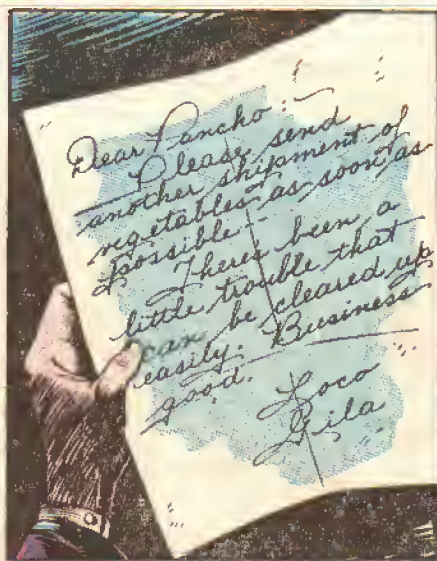 Dear Pancho:—
Please send
another shipment of
vegetables as soon as
possible—
Theres been a
little trouble that
can be cleared up
easily. Business
good.
Loco
Gila